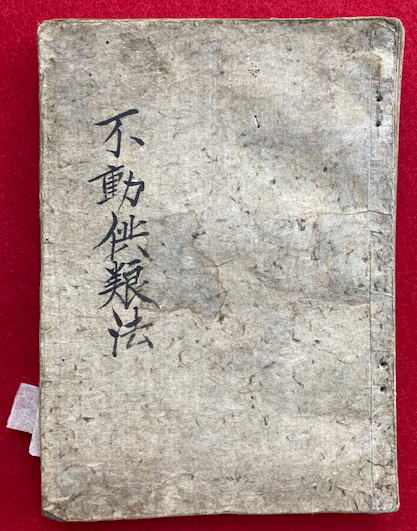 不動供粮法